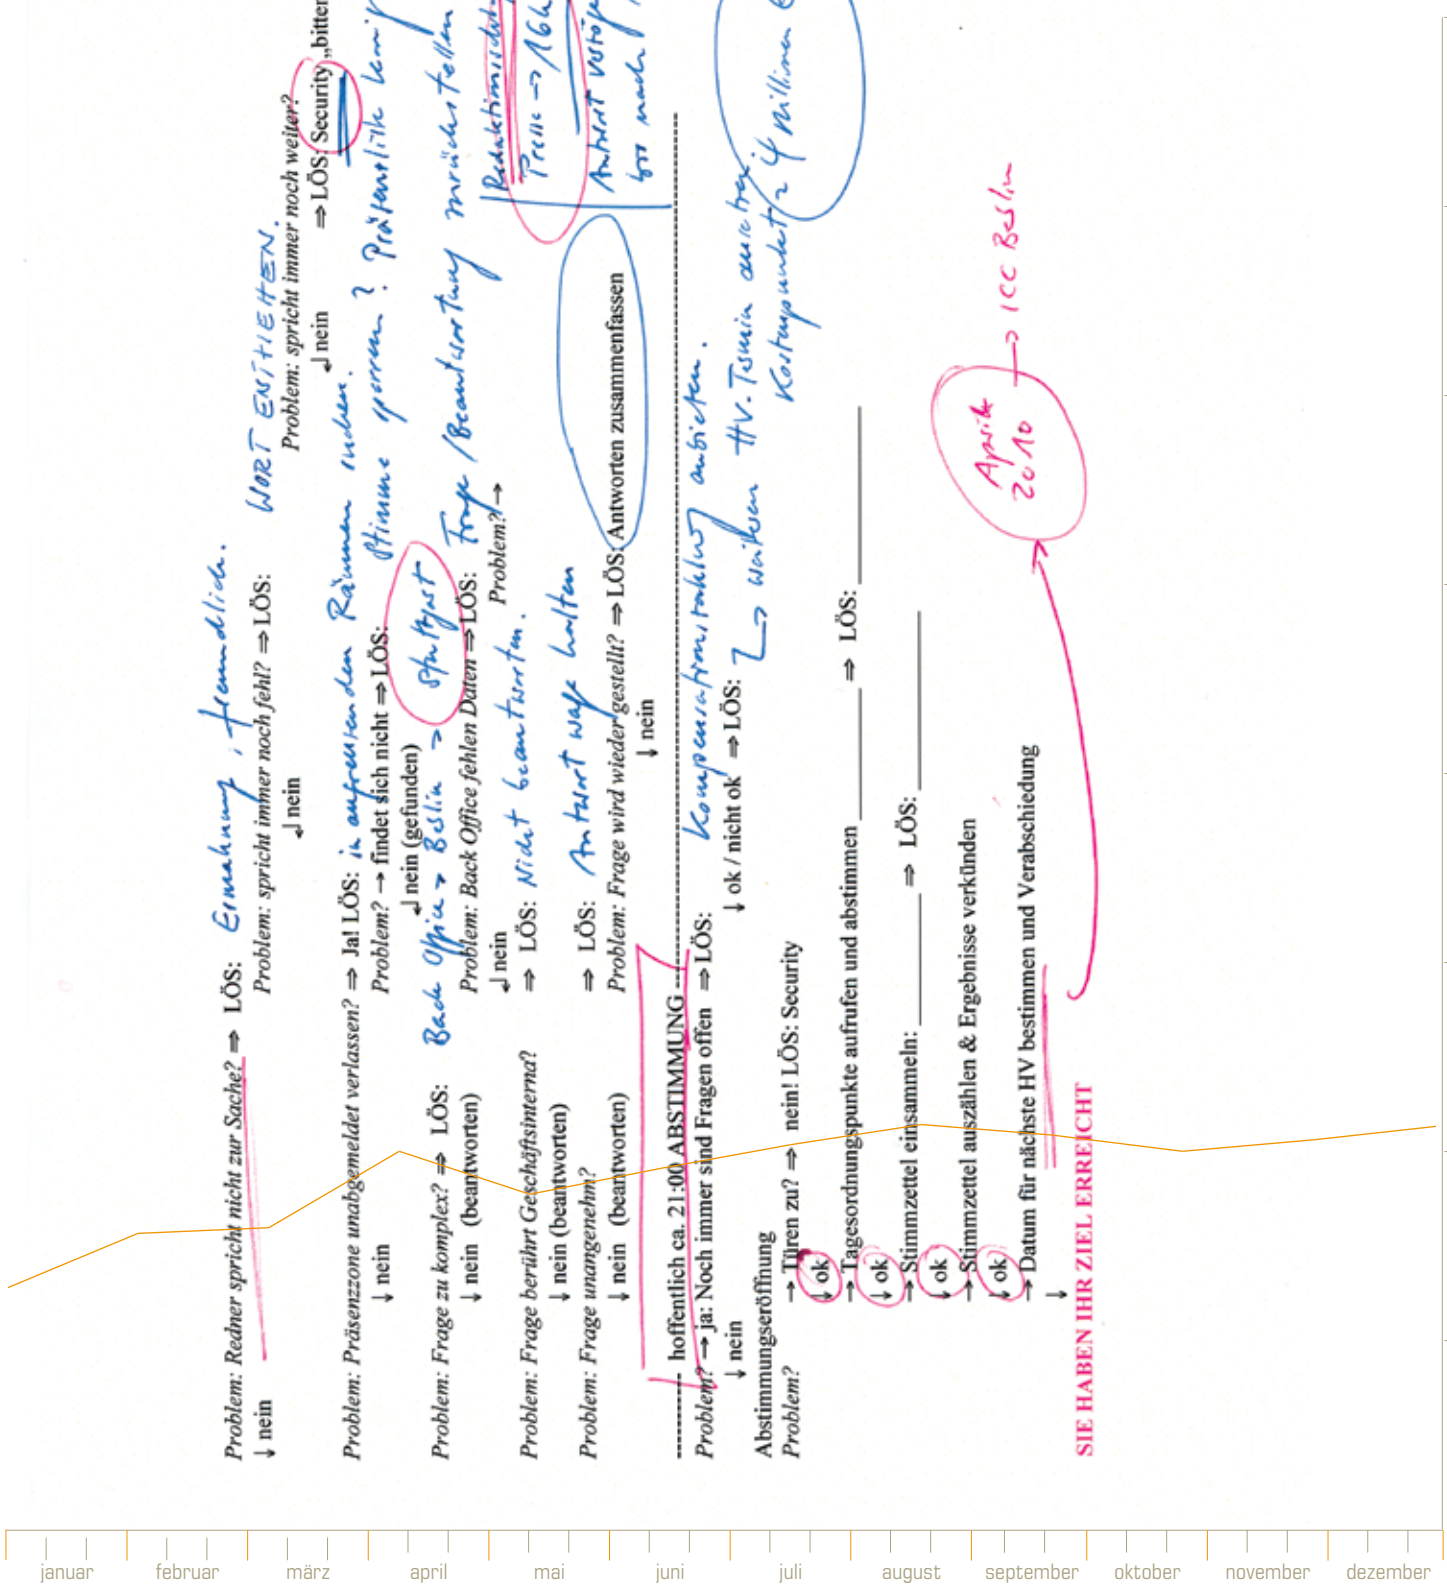 Problem: Redner spricht nicht zur Sache? ⇒ LÖS: Ermahnung, freundlich.
↓ nein
Problem: spricht immer noch fehl? ⇒ LÖS: WORT ENTZIEHEN.
↲ nein
Problem: spricht immer noch weiter?
↲ nein ⇒ LÖS: Security „bitten
Problem: Präsenzzone unabgemeldet verlassen? ⇒ Ja! LÖS: in angrenzenden Räumen suchen.
↓ nein
Problem? → findet sich nicht ⇒ LÖS: Stimme sperren? Präsentliste
↲ nein (gefunden)
Problem: Frage zu komplex? ⇒ LÖS: Back Office → Berlin → Stuttgart
↓ nein (beantworten)
Problem: Back Office fehlen Daten ⇒ LÖS: Frage / Beantwortung zurückstellen
↲ nein
Problem? →
Redaktionsschl
Presse → 16h
Antwort
bis nach
Problem: Frage berührt Geschäftsinterna? ⇒ LÖS: Nicht beantworten.
↓ nein (beantworten)
Problem: Frage unangenehm? ⇒ LÖS: Antwort vage halten
↓ nein (beantworten)
Problem: Frage wird wieder gestellt? ⇒ LÖS: Antworten zusammenfassen
↓ nein
-------- hoffentlich ca. 21:00 ABSTIMMUNG --------
Problem? → ja: Noch immer sind Fragen offen ⇒ LÖS: Kompensationszahlung anbieten.
↓ nein
↓ ok / nicht ok ⇒ LÖS: → weiteren HV-Termin
Kostenpunkt 4 Millionen €
Abstimmungseröffnung
Problem? → Türen zu? ⇒ nein! LÖS: Security
↓ ok
→ Tagesordnungspunkte aufrufen und abstimmen ________ ⇒ LÖS: ________
↓ ok
→ Stimmzettel einsammeln: ________ ⇒ LÖS: ________
↓ ok
→ Stimmzettel auszählen & Ergebnisse verkünden
↓ ok
→ Datum für nächste HV bestimmen und Verabschiedung
↓
April 2010 → ICC Berlin
SIE HABEN IHR ZIEL ERREICHT
januar februar märz april mai juni juli august september oktober november dezember